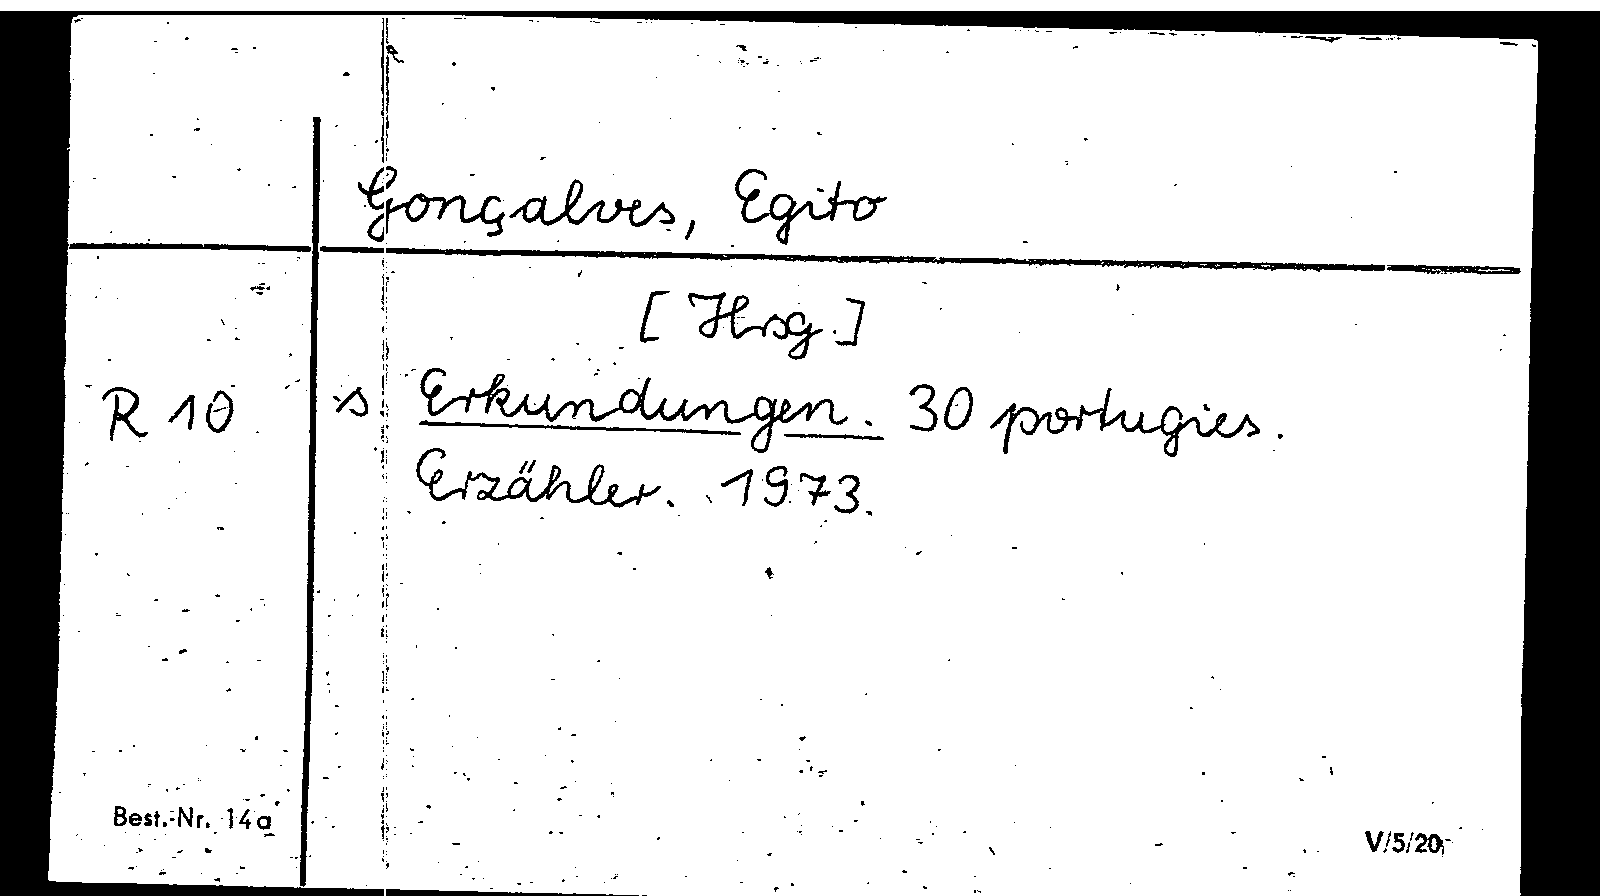 Gonçalves, Egito
[Hrsg.]
R 10 s. Erkundungen. 30 portugies.
Erzähler. 1973.
Best.-Nr. 14a
V/5/20